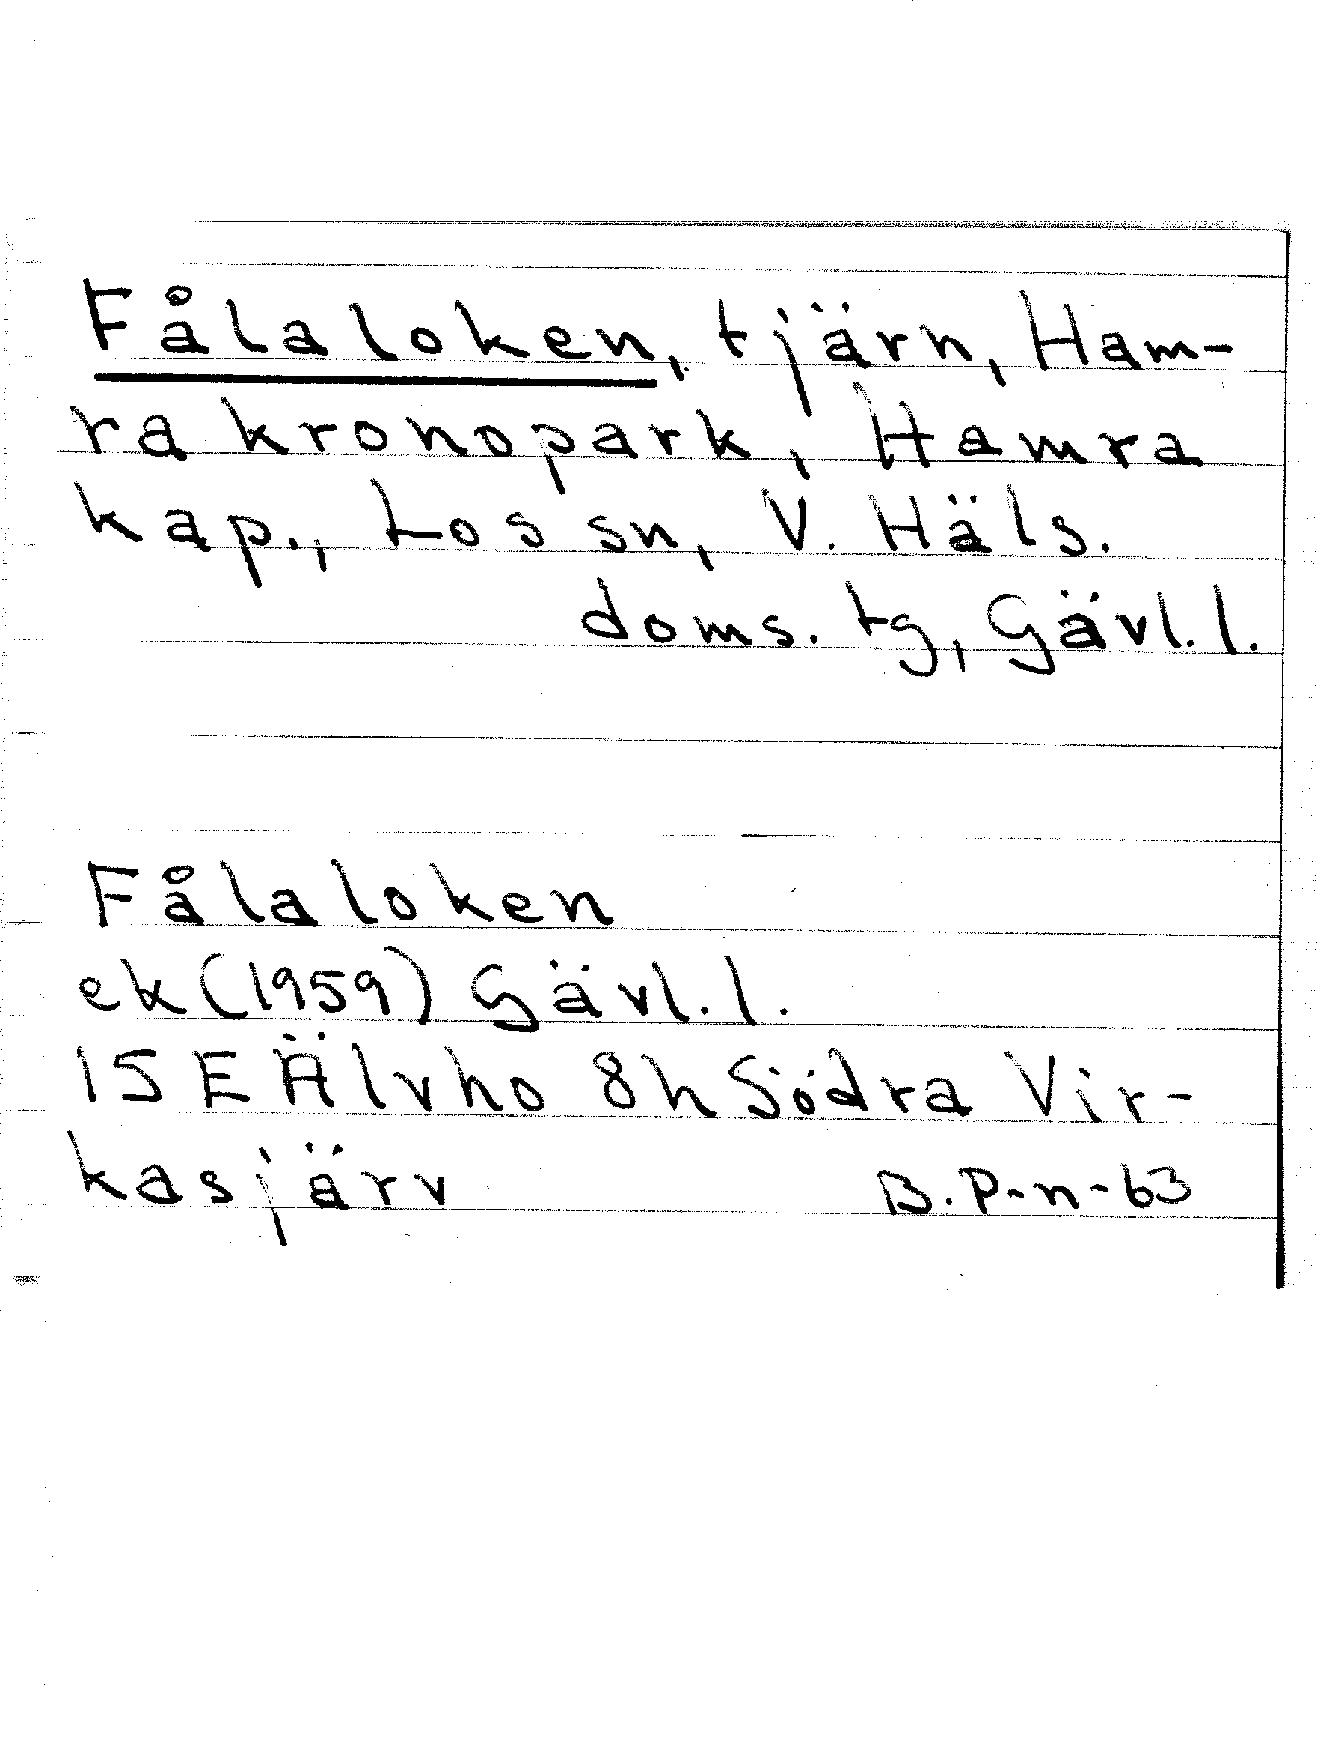 Fålaloken, tjärn, Ham-
ra kronopark, Hamra
kap., Los sn, V. Häls.
doms. tg, Gävl. l.
Fålaloken
ek (1959) Gävl. l.
15 E Älvho 8h Södra Vir-
kasjärv B. P-n-63